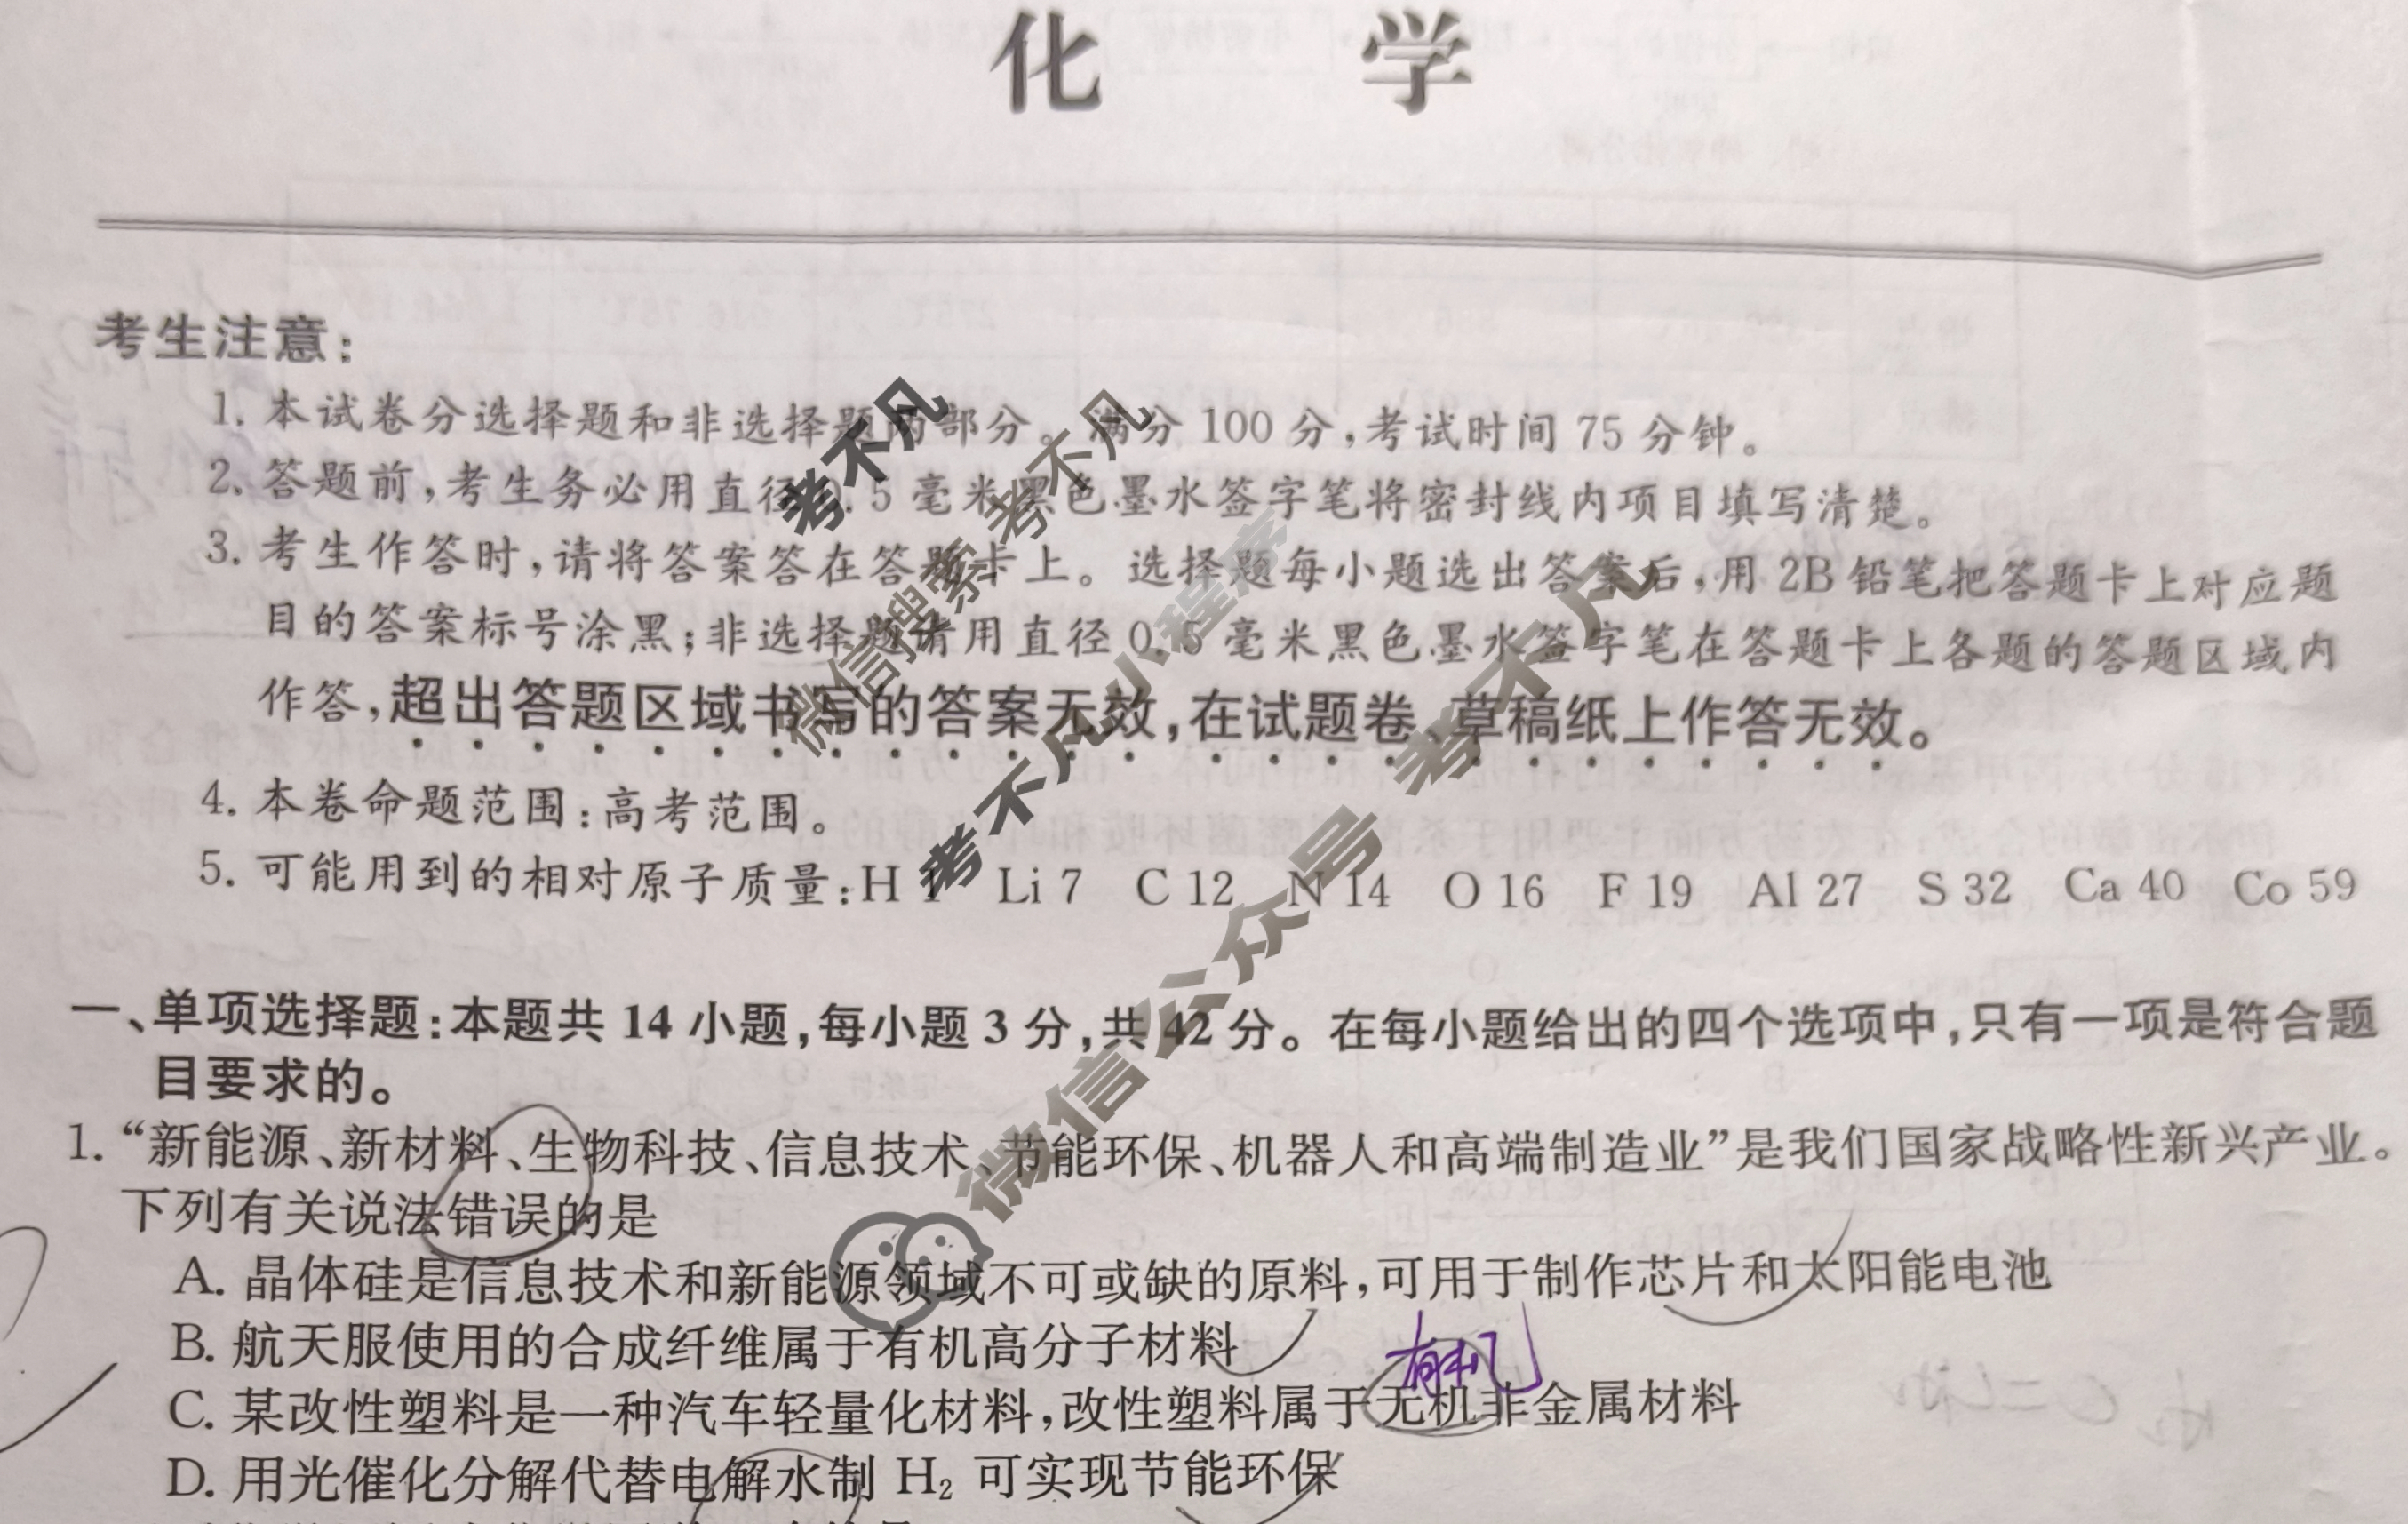 化 学
考生注意:
1. 本试卷分选择题和非选择题两部分。满分 100 分,考试时间 75 分钟。
2. 答题前,考生务必用直径 0.5 毫米黑色墨水签字笔将密封线内项目填写清楚。
3. 考生作答时,请将答案答在答题卡上。选择题每小题选出答案后,用 2B 铅笔把答题卡上对应题
目的答案标号涂黑;非选择题请用直径 0.5 毫米黑色墨水签字笔在答题卡上各题的答题区域内
作答,超出答题区域书写的答案无效,在试题卷、草稿纸上作答无效。
4. 本卷命题范围:高考范围。
5. 可能用到的相对原子质量:H 1 Li 7 C 12 N 14 O 16 F 19 Al 27 S 32 Ca 40 Co 59
一、单项选择题:本题共 14 小题,每小题 3 分,共 42 分。在每小题给出的四个选项中,只有一项是符合题
目要求的。
1. “新能源、新材料、生物科技、信息技术、节能环保、机器人和高端制造业”是我们国家战略性新兴产业。
下列有关说法错误的是
A. 晶体硅是信息技术和新能源领域不可或缺的原料,可用于制作芯片和太阳能电池
B. 航天服使用的合成纤维属于有机高分子材料
有机
C. 某改性塑料是一种汽车轻量化材料,改性塑料属于无机非金属材料
D. 用光催化分解代替电解水制 H₂ 可实现节能环保
考不凡
微信搜索 考不凡
考不凡小程序
微信公众号 考不凡